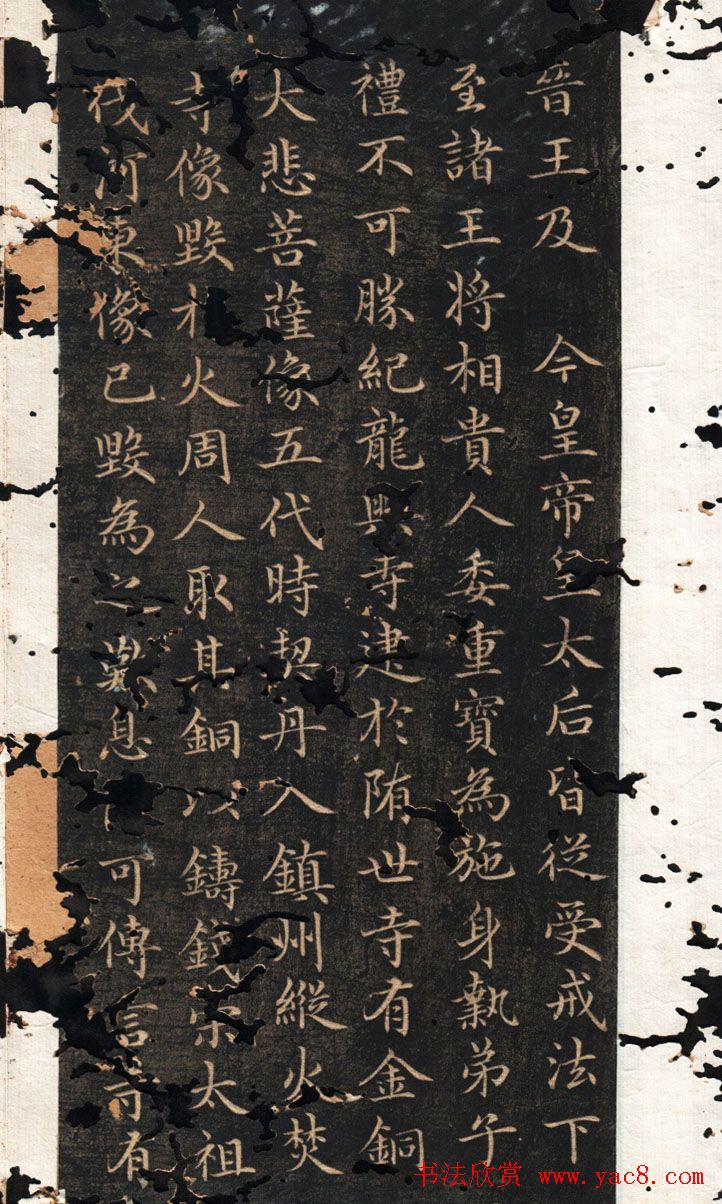 晉王及　今皇帝皇太后皆從受戒法下
至諸王將相貴人委重寶為施身執弟子
禮不可勝紀龍興寺建於隋世寺有金銅
大悲菩薩像五代時契丹入鎮州縱火焚
寺像毀於火周人取其銅以鑄錢宋太祖
伐河東像已毀為之歎息可傳言寺有
书法欣赏 www.yac8.com